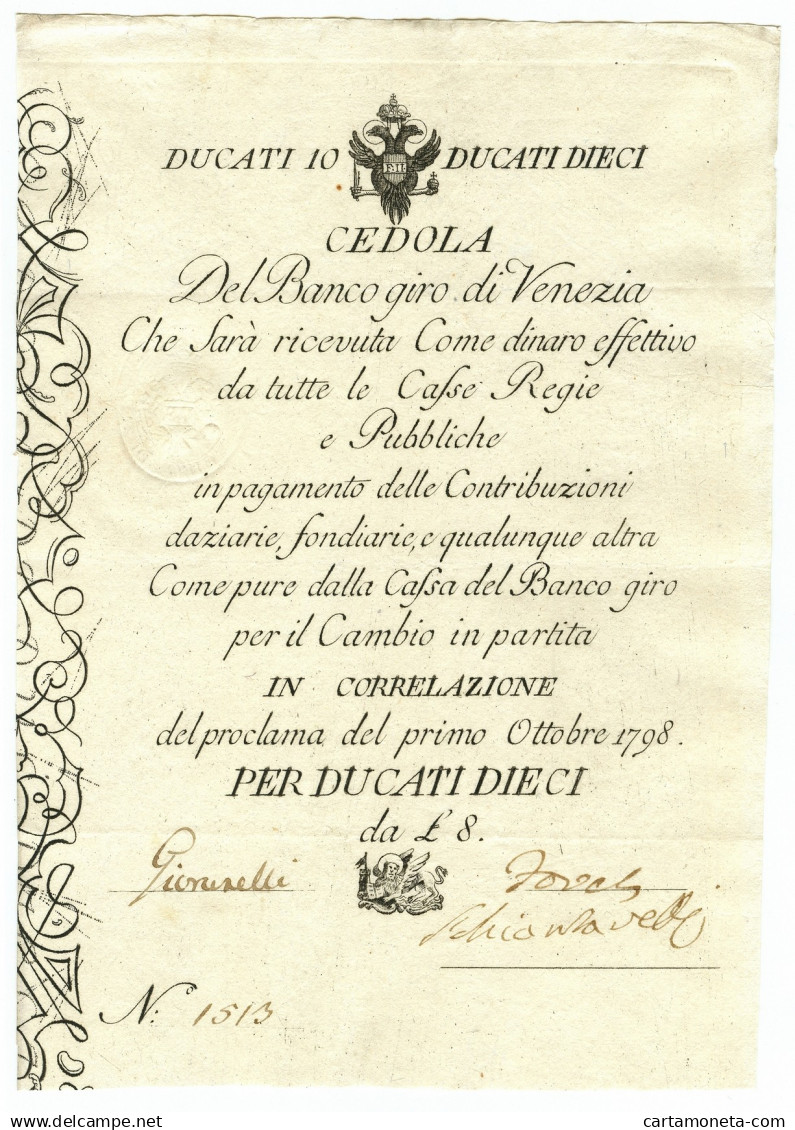 DUCATI 10 DUCATI DIECI
F.II.
CEDOLA
Del Banco giro di Venezia
Che Sarà ricevuta Come dinaro effettivo
da tutte le Caſse Regie
e Pubbliche
in pagamento delle Contribuzioni
daziarie, fondiarie, e qualunque altra
Come pure dalla Caſsa del Banco giro
per il Cambio in partita
IN CORRELAZIONE
del proclama del primo Ottobre 1798.
PER DUCATI DIECI
da £ 8.
N.º 1513
cartamoneta-com